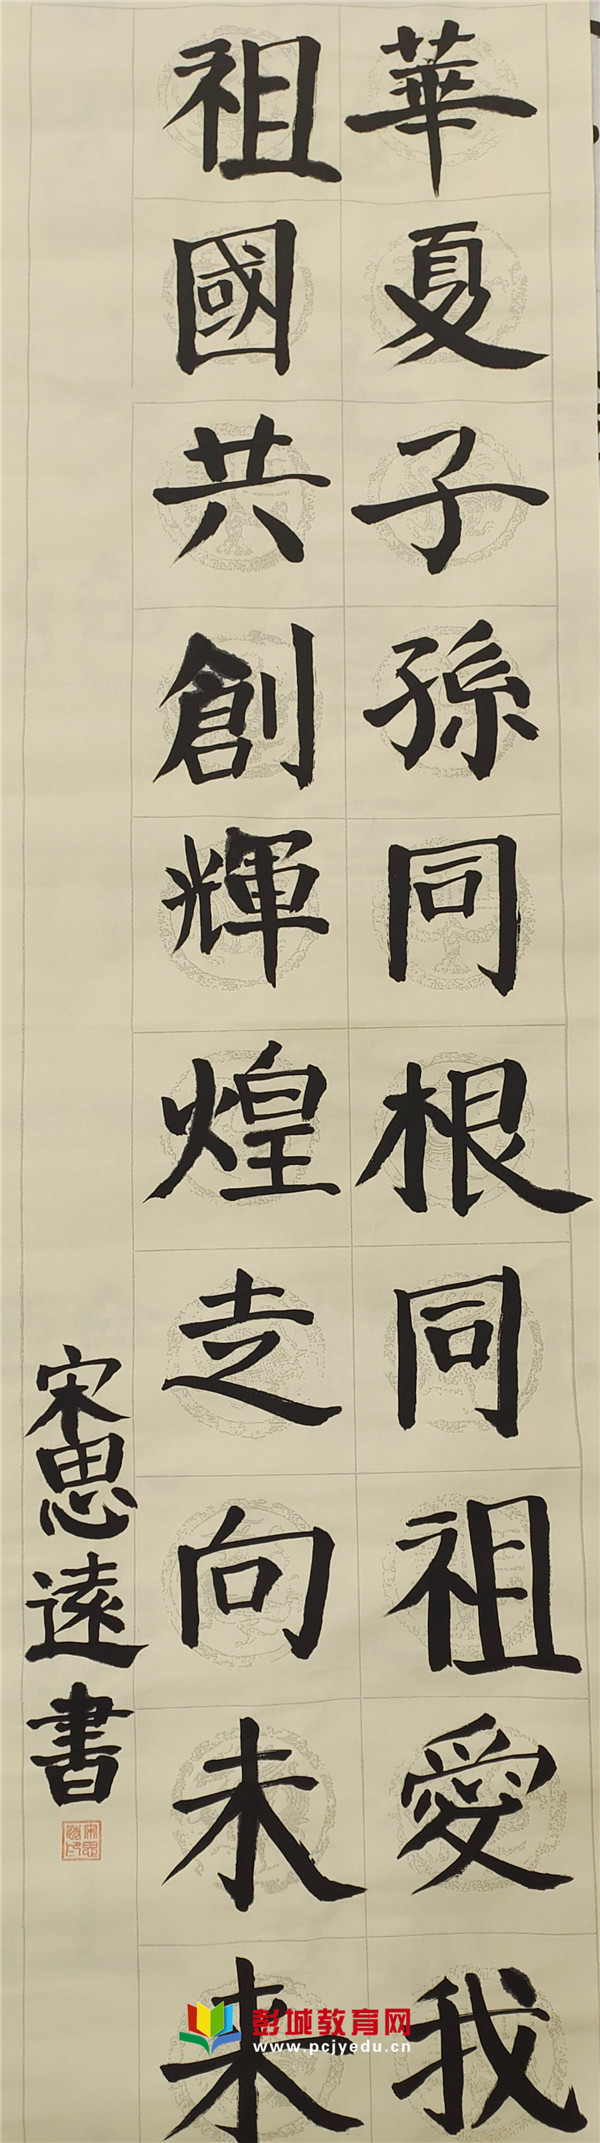 華夏子孫同根同祖愛我
祖國共創輝煌走向未来
宋思遠書
宋思遠印
彭城教育网
www.pcjyedu.cn